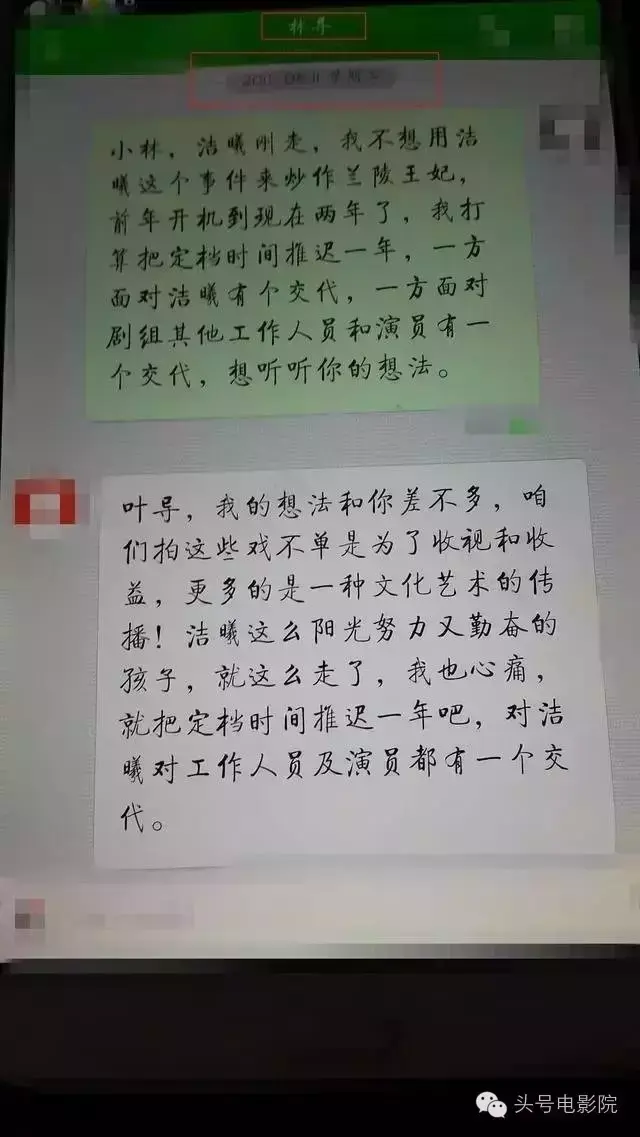 林导
小林，洁曦刚走，我不想用洁
曦这个事件来炒作兰陵王妃，
前年开机到现在两年了，我打
算把定档时间推迟一年，一方
面对洁曦有个交代，一方面对
剧组其他工作人员和演员有一
个交代，想听听你的想法。
叶导，我的想法和你差不多，咱
们拍这些戏不单是为了收视和收
益，更多的是一种文化艺术的传
播！洁曦这么阳光努力又勤奋的
孩子，就这么走了，我也心痛，
就把定档时间推迟一年吧，对洁
曦对工作人员及演员都有一个交
代。
头号电影院